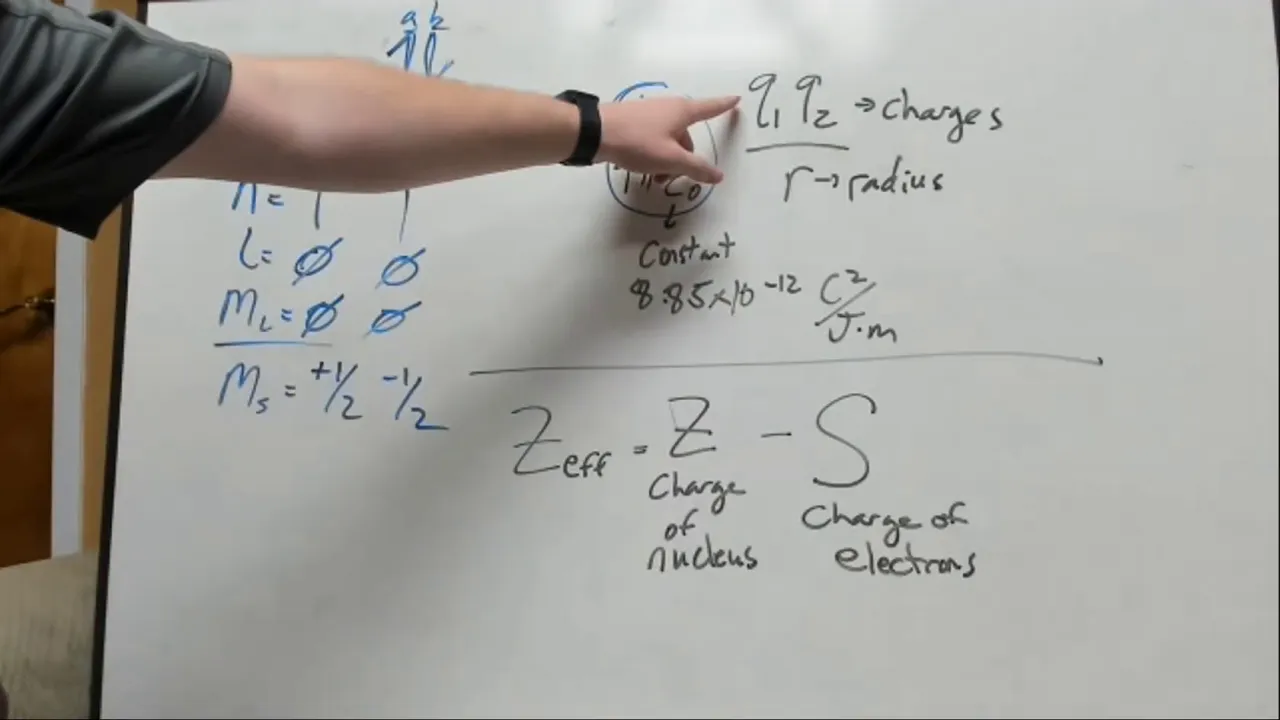 a b
n =
l = ∅ ∅
M_L = ∅ ∅
M_s = +1/2 -1/2
q₁ q₂ → charges
r → radius
Constant
8.85x10⁻¹² C²/J·m
Z_eff = Z - S
Charge of nucleus
Charge of electrons